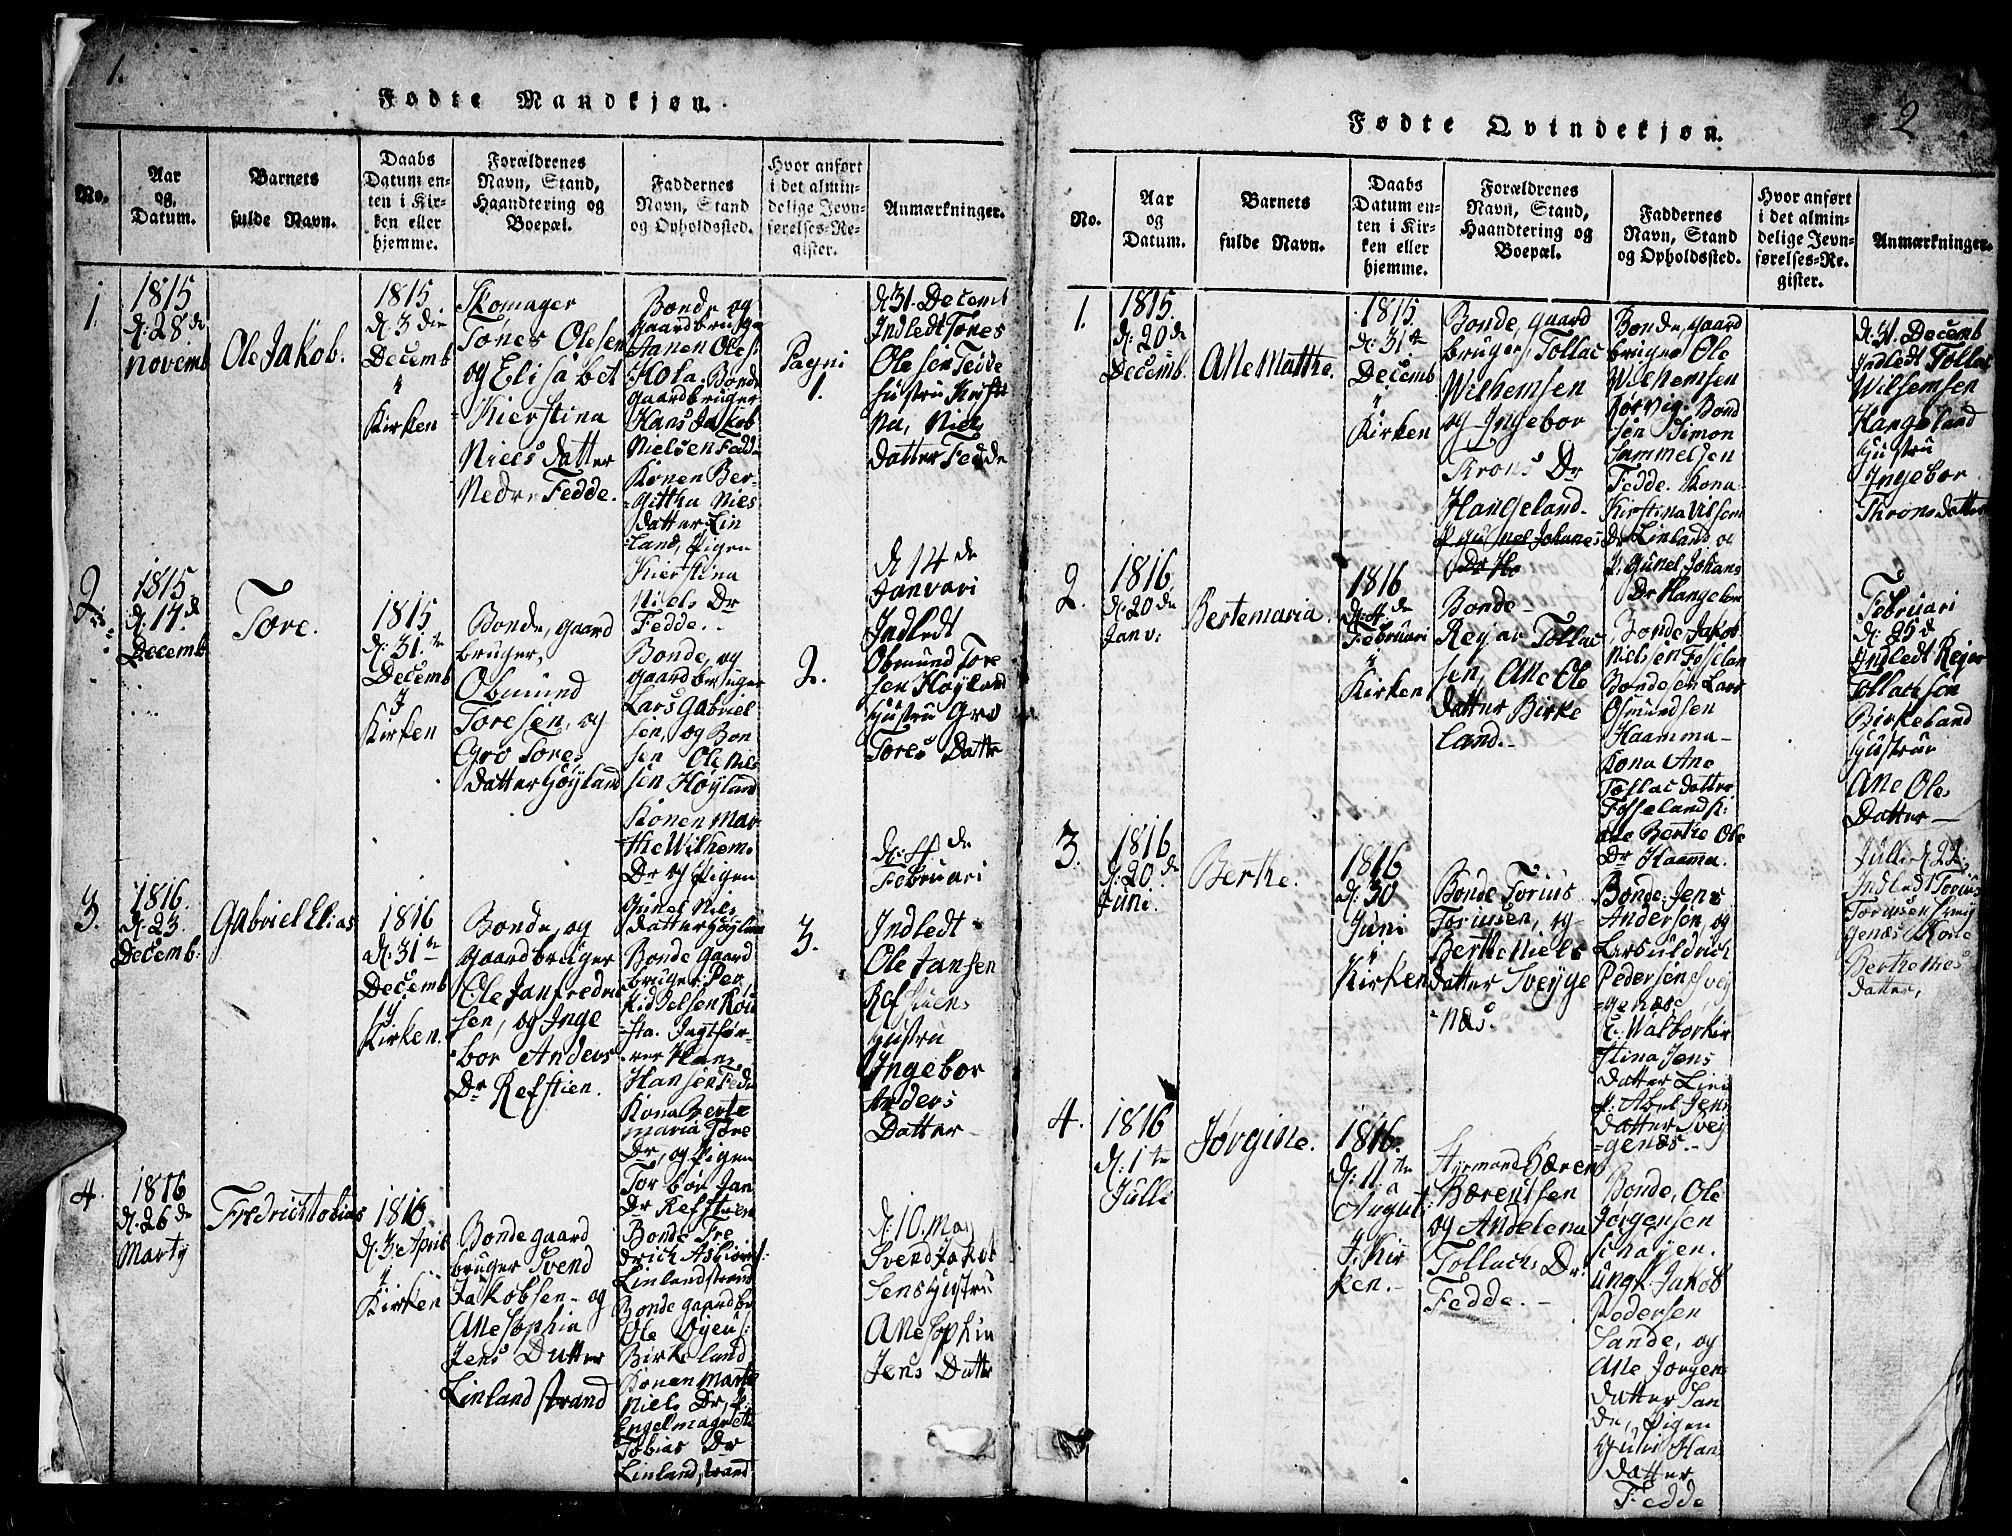 1.
Fødte Mandkjøn.
No.
Aar
og
Datum.
Barnets
fulde Navn.
Daabs
Datum en-
ten i Kir-
ken eller
hjemme.
Forældrenes
Navn, Stand,
Haandtering og
Boepæl.
Faddernes
Navn, Stand
og Opholdssted.
Hvor anført
i det almin-
delige Jevn-
førelses-Re-
gister.
Anmærkninger.
1.
1815
d. 28 de
novemb
Ole Jakob.
1815
d. 3 die
Decemb
i
Kirken
Skomager
Tønes Olesen
og Elisabet
Kierstina
Niels Datter
Nedre Fedde.
Bonde og
gaardbruger
Hans Jakob
Nielsen Fedde
Konen Ber-
githa Niels
datter Lin
land, Pigen
Kierstina
Niels Dr
Fedde.
Pagni
1.
d. 31. Decemb
Indledt Tønes
Olesen Fedde
Hustru Kirsti
na, Niels
datter Fedde
2.
1815
d. 17. d
Decemb
Tore.
1815
d. 31. te
Decemb
i
Kirken
Bonde, gaard
bruger,
Obmund
Toresen, og
Gro Tores
datter Høyland
Bonde, og
gaardbruger
Lars Gabriel
sen, og Bon
sen Ole Niels
sen Høyland
Konen Mar
the Wilhem.
Dr og Pigen
Gunel Niels
datter Høyland
2.
d 14 de
Januari
Indledt
Obmund Tore
sen Høyland
Hustru Gro
Tores Datter
3.
1816.
d. 23.
Decemb.
Gabriel Elias
1816
d. 31 te
Decemb
i
Kirken.
Bonde, og
gaardbruger
Ole Janfredric
sen, og Inge
bor Anders
Dr Refstien.
Bonde Gaard
bruger Per
Hansen Fede
Kona Berte
maria Tore
Dr, og Pigen
Tor bor Jan
Dr Refstien
3.
d. 4 de
Februari
Indledt
Ole Jansen
Refstien
Hustru
Ingebor
Anders
Datter
4.
1816
d. 26 de
Marty
Fredrich tobias
1816
d. 3 April
i
Kirken
Bonde gaard
bruger Svend
Jakobsen og
Ane Sophia
Jens Datter
Linland strand
Bonde Fre
drich
Linland strand
Bonde gaardbr
Ole
Birkeland
Konen Marte
Niels Dr, P.
Engel magrete
Tobias Dr
Linland strand
d. 10. May
Svend Jakob
sens Hustru
Ane Sophia
Jens Datter
2
Fødte Qvindekjøn.
No.
Aar
og
Datum.
Barnets
fulde Navn.
Daabs
Datum en-
ten i Kir-
ken eller
hjemme.
Forældrenes
Navn, Stand,
Haandtering og
Boepæl.
Faddernes
Navn, Stand
og Opholdssted.
Hvor anført
i det almin-
delige Jevn-
førelses-Re-
gister.
Anmærkninger.
1.
1815.
d. 20 de
Decemb.
Ane Marthe.
1815.
d. 31 te
Decemb
i
Kirken
Bonde, gaard
bruger, Tollac
Wilhemsen
og Ingebor
Trons Dr
Hangeland.
Bonde, gaard
bruger Ole
Wilhemsen
Rørvig. Bond
sen Simon
Sammelsen
Fedde. Kona
Dr Linland og
P. Gunel Johans
Dr Hangelan
d. 31. Decemb
Indledt Tollac
Wilhemsen
Hangeland
Hustru
Ingebor
Trons datter
2.
1816
d. 20 de
Janv:
Bertemaria.
1816
d. 4 de
Februari
i
Kirken
Bonde
Reyar Tollac
sen, Ane Ole
datter Birke
land.
Bonde Jakob
Nielsen Fosselan
Bondesen Lars
Osmundsen
Haamma
Kona Ane
Tollac datter
Fosseland
Berthe Ole
Dr Haamma.
Februari
d. 25 d
Indledt Rejer
Tollacsen
Birkeland
Hustrue
Ane Oles
Datter
3.
1816
d. 20 de
Juni.
Berthe.
1816
d. 30
Juni
i
Kirken
Bonde Torius
Toriusen, og
Berthe Niels
datter Sveyge
næs.
Bonde Jens
Andersen, og
Lars Uldrich
Pedersen Svey
genæs
K. Walborkir
stina Jens
Datter Lin
P. Abel Jens
datter Svey
genæs.
Juli d. 22.
Indledt Torius
Toriusen Svey
genæs Kone
Berthe Niels
datter,
4.
1816
d. 1 te
Julli
Jørgine.
1816.
d. 11. te
August
I. Kir
ken.
Bæren
Bærentsen
og Andelena
Tollachs Dr.
Fedde.
Bonde, Ole
Jørgensen
Ungk. Jakob
Pedersen
Sande, og
Ane Jørgen
datter San
de, Pigen
Guri Hans
datter
Fedde